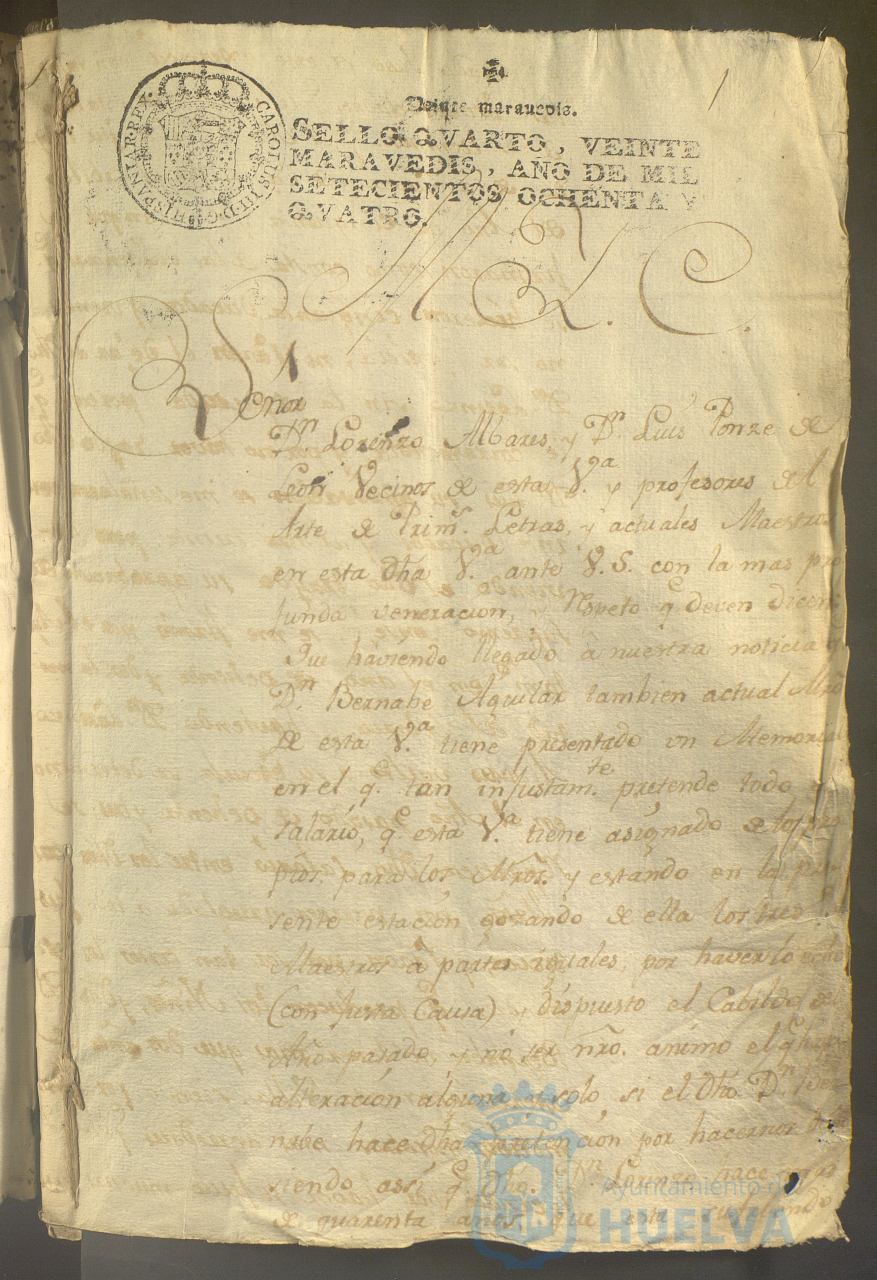 1
Veinte marauedis.
CAROLUS III D.G. HISPANIAR. REX
SELLO QVARTO, VEINTE
MARAVEDIS, AÑO DE MIL
SETECIENTOS OCHENTA Y
QVATRO.
M. I. C.
Señor
Dn Lorenzo Albares, y Dn Luis Ponze de
Leon Vecinos de esta V.a y profesores del
Arte de Prim.s Letras, y actuales Maestros
en esta dha V.a ante V.S. con la mas pro
funda veneracion, y respeto q.e deven dicen:
Que haviendo llegado â nuestra noticia q.e
Dn Bernabe Aguilar tambien actual Mro
de esta V.a tiene presentado un Memorial
en el q.e tan injustam.te pretende todo el
salario, q.e esta V.a tiene asignado de los pro
pios para los Mros. y estando en la pre
sente estacion gozando de ella los tres
Maestros â partes iguales, por haverlo
(con justa Causa) y dispuesto el Cabildo del
Año pasado, y no ser nro. animo el q.e
alteracion alguna y solo si el dho Dn Ber
nabe hace dha pretencion por hacernos
siendo assi q.e dho. Dn Lorenzo hace
de quarenta años que esta
Ayuntamiento de
HUELVA